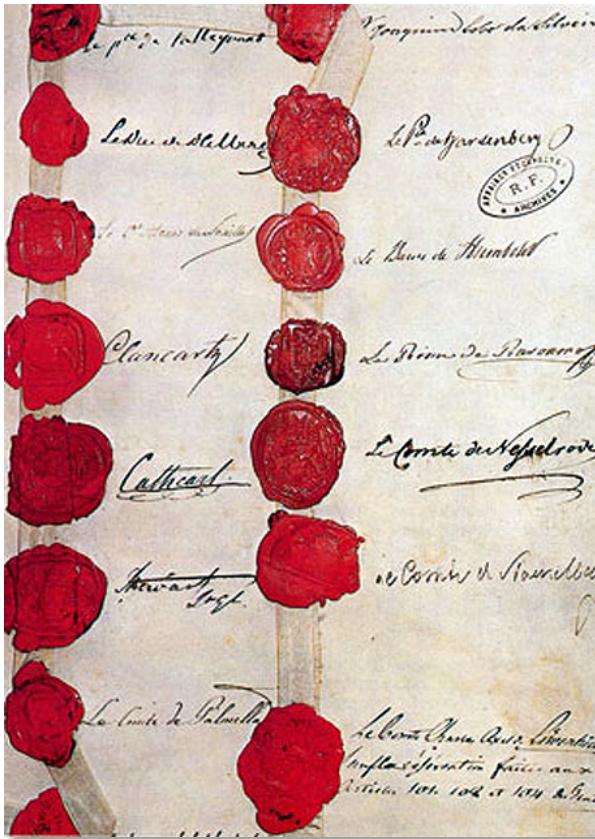 Le Pce de Talleyrand
Le Duc de Dalberg
Clancarty
Cathcart
Stewart
Le Comte de Palmella
Joaquim Lobo da Silveira
Le Pce de Hardenberg
AFFAIRES ÉTRANGÈRES
R.F.
ARCHIVES
Le Baron de Humboldt
Le Prince de Rasoumoffsky
Le Comte de Nesselrode
Le Comte de
Le Comte Charles Axel de Löwenhielm
faite aux
articles 101. 102 et 104 du